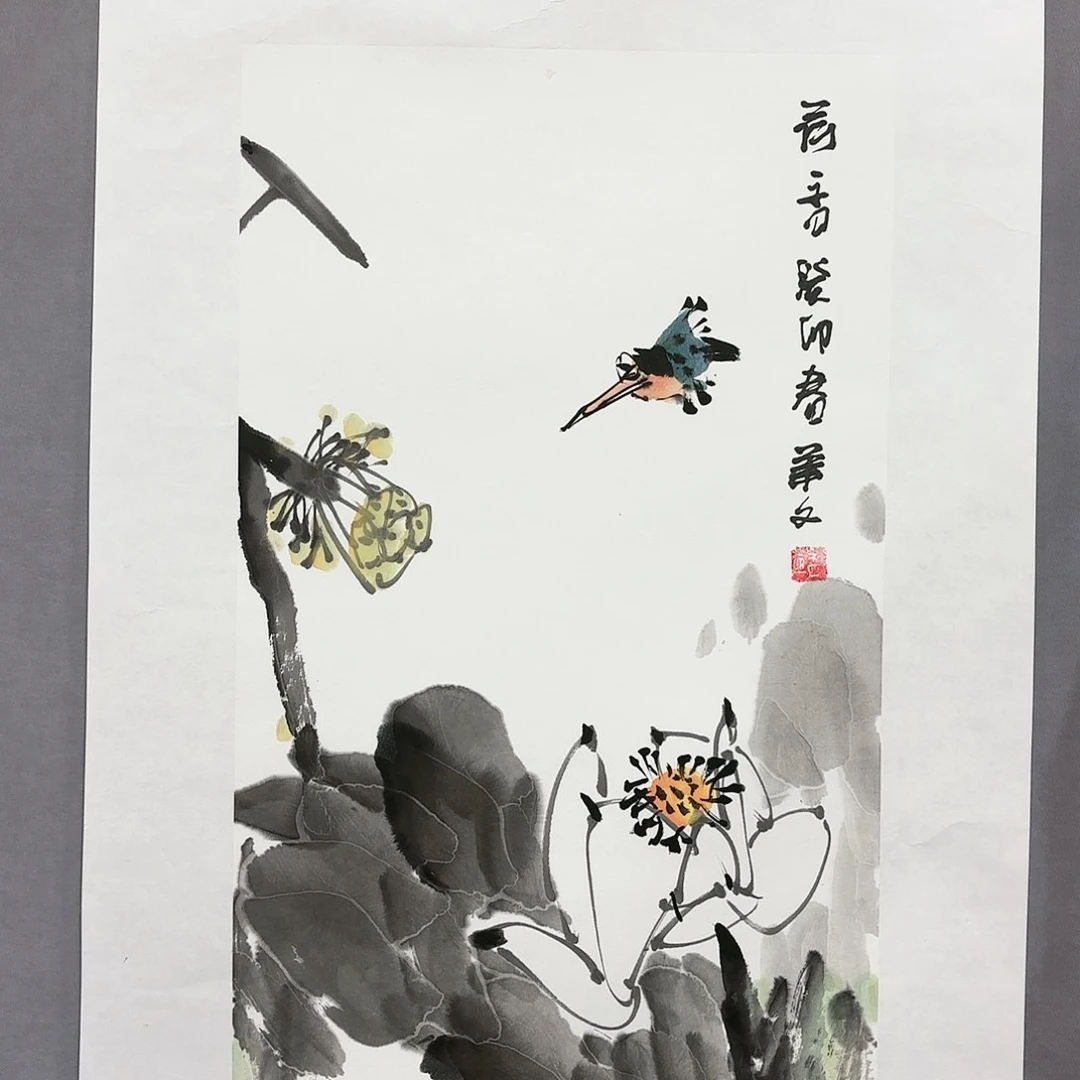 荷香癸卯春华文